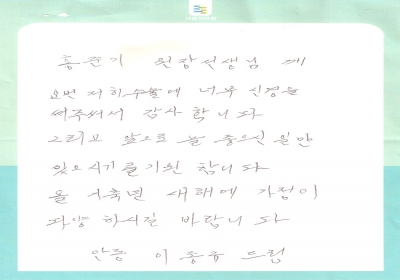 홍준기 원장선생님 께
요번 저희 수술에 너무 신경을
써주셔서 감사 합니다
그리고 앞으로 늘 좋으신 일만
있으시기를 기원 합니다
올 새해에 가정이
하시길 바랍니다
안중 이종 드림